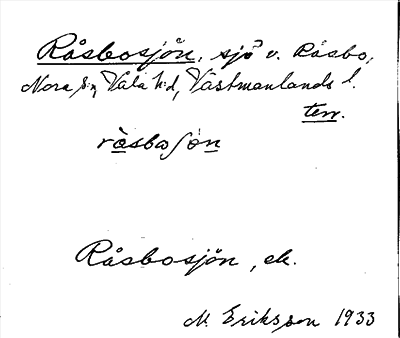 Råsbosjön, sjö v. Råsbo,
Nora s:n, Våla h:d, Västmanlands l.
terr.
ràsbaʃön
Råsbosjön, ek.
M. Eriksson 1933